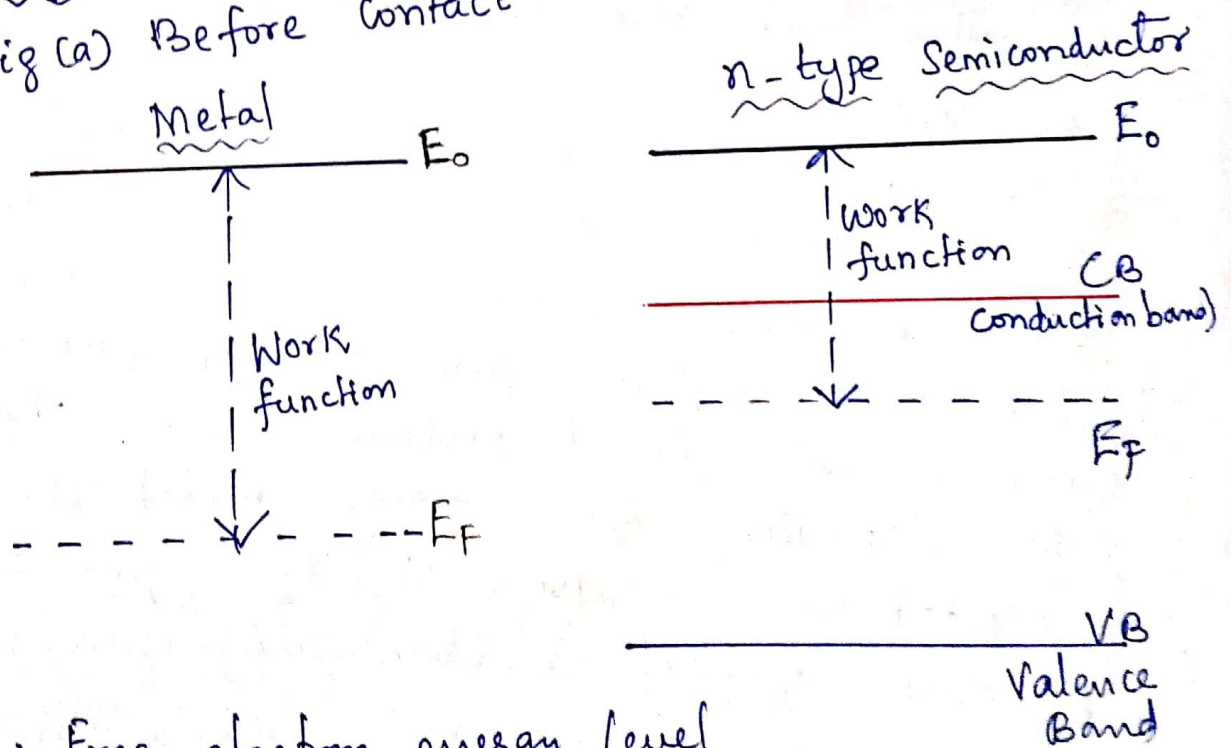 ig (a) Before Contact
Metal
E₀
Work
function
E_F
n-type Semiconductor
E₀
Work
function
CB
Conduction band)
E_F
VB
Valence
Band
Free electron energy level